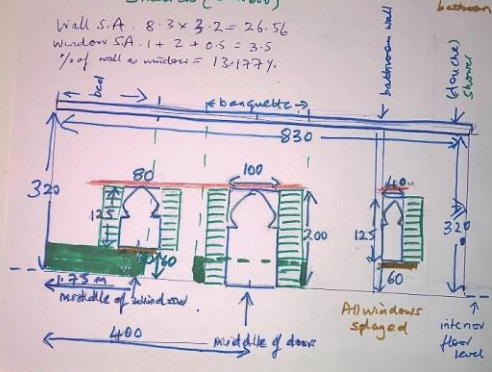 bathroom
Wall S.A. 8.3 x 3.2 = 26.56
window S.A. 1 + 2 + 0.5 = 3.5
% of wall as windows = 13.177%
bed
banquette
bathroom wall
(douche)
shower
830
80
100
40
320
125
200
125
320
60
60
1.75 M
middle of window
400
middle of door
All windows
splayed
interior
floor
level